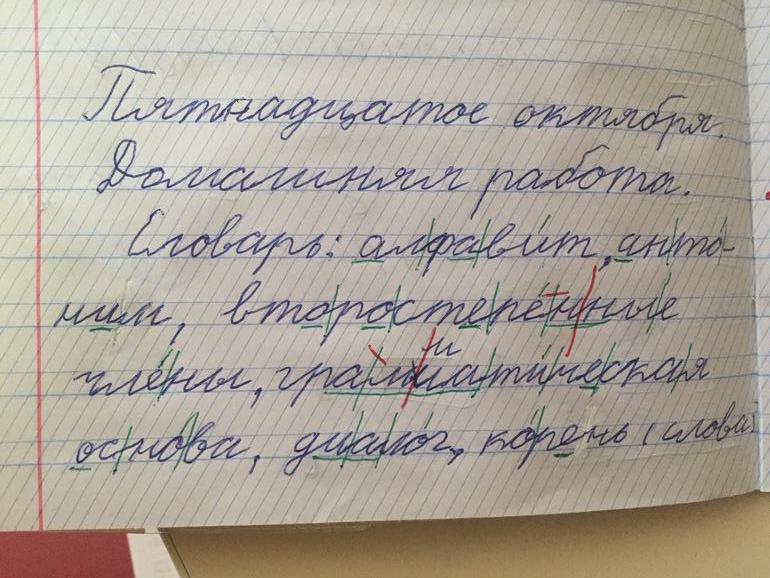 Пятнадцатое октября.
Домашняя работа.
Словарь: алфавит, анто-
ним, второстепенные
члены, грамматическая
основа, диалог, корень (слова)